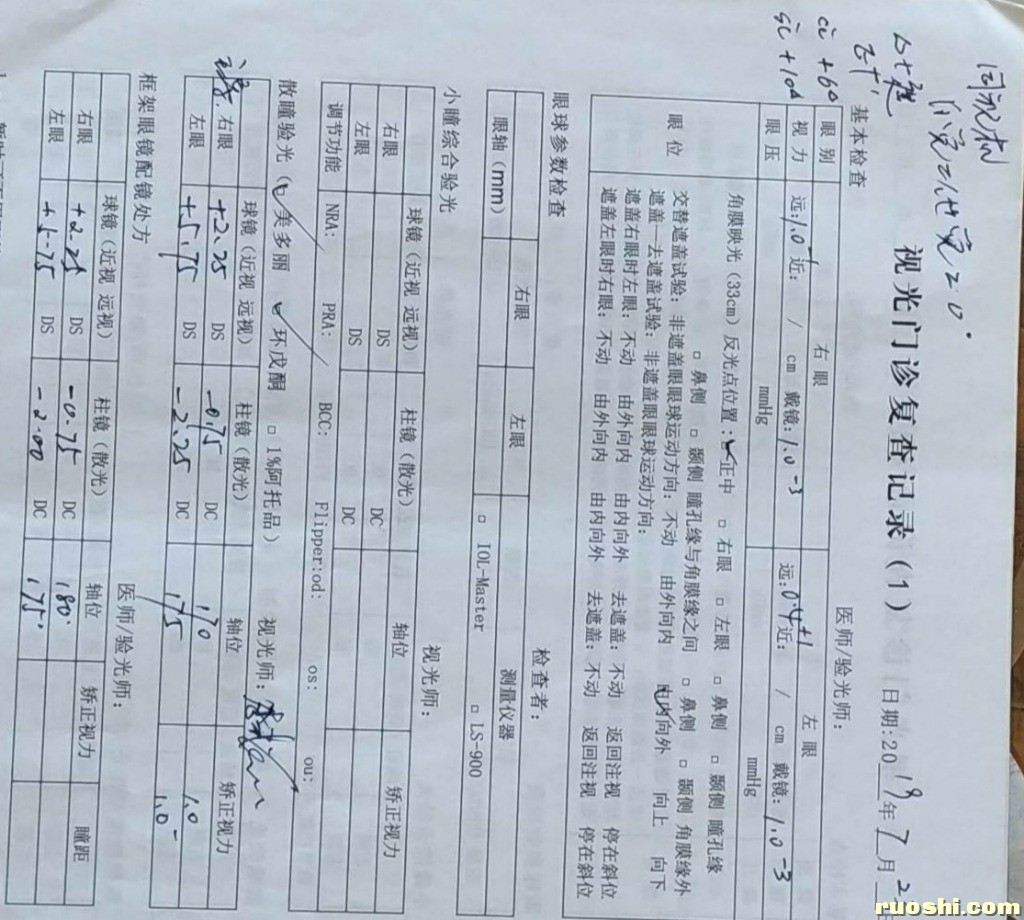 同视机
视光门诊复查记录（1）
日期:2019年7月2
基本检查
医师/验光师：
眼别 右眼 左眼
视力 远:1.0 近： / cm 戴镜:1.0-3 远:0.4+1 近： / cm 戴镜:1.0-3
眼压 mmHg mmHg
眼位
角膜映光（33cm）反光点位置：✓正中 □ 右眼 □ 左眼 □ 鼻侧 □ 颞侧 瞳孔缘
□ 鼻侧 □ 颞侧 瞳孔缘与角膜缘之间 □ 鼻侧 □ 颞侧 角膜缘外
交替遮盖试验：非遮盖眼眼球运动方向：不动 由外向内 由内向外 向上 向下
遮盖—去遮盖试验：非遮盖眼眼球运动方向：
遮盖右眼时左眼：不动 由外向内 由内向外 去遮盖：不动 返回注视 停在斜位
遮盖左眼时右眼：不动 由外向内 由内向外 去遮盖：不动 返回注视 停在斜位
眼球参数检查
检查者：
右眼 左眼 测量仪器
眼轴（mm） □ IOL-Master □ LS-900
小瞳综合验光
视光师：
球镜（近视 远视） 柱镜（散光） 轴位 矫正视力
右眼 DS DC
左眼 DS DC
调节功能 NRA: / PRA: / BCC: Flipper:od: os: ou:
散瞳验光（✓美多丽 ✓环戊酮 □ 1%阿托品） 视光师：
球镜（近视 远视） 柱镜（散光） 轴位 矫正视力
右眼 +2.25 DS -0.75 DC 170 1.0
左眼 +5.75 DS -2.25 DC 175 1.0-
框架眼镜配镜处方
医师/验光师：
球镜（近视 远视） 柱镜（散光） 轴位 矫正视力 瞳距
右眼 +2.25 DS -0.75 DC 180
左眼 +5.75 DS -2.00 DC 175
ruoshi.com